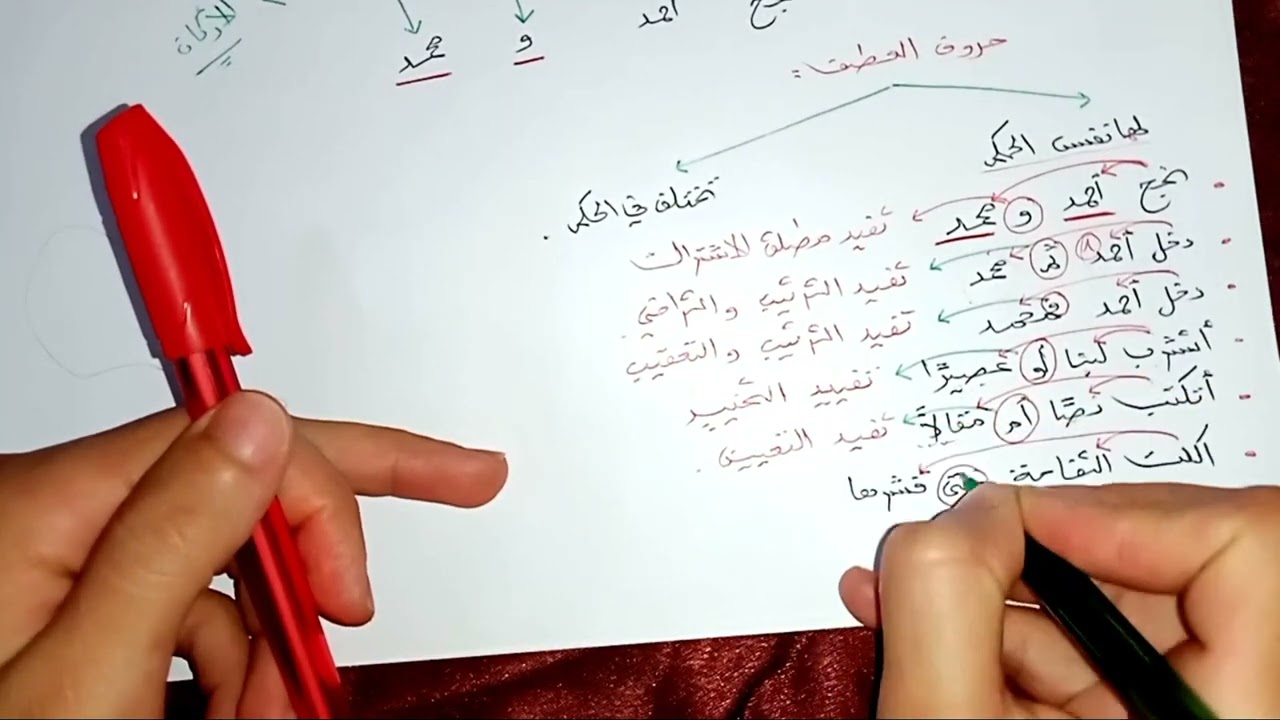 نجح أحمد و محمد الأركان
حروف العطف:
لها نفس الحكم
تختلف في الحكم.
نجح أحمد و محمد تفيد مطلق الاشتراك
دخل أحمد ثم محمد تفيد الترتيب والتراخي.
دخل أحمد فمحمد تفيد الترتيب والتعقيب
أشرب لبنا أو عصيرًا تفييد التخيير
أتكتب نصًا أم مقالاً تفيد التعيين.
أكلت التفاحة حتى قشرها